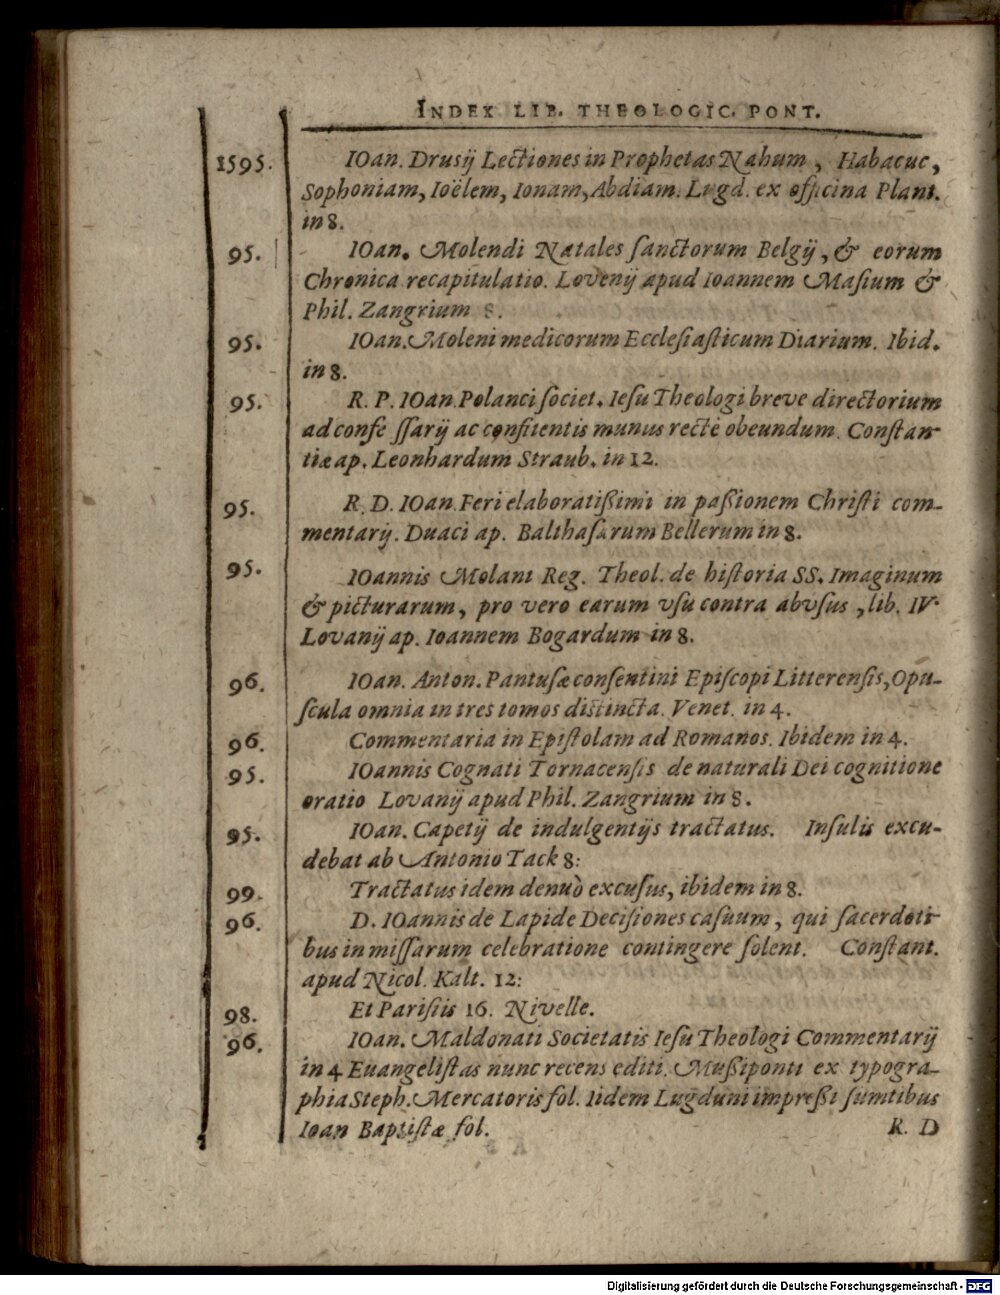 INDEX LIB. THEOLOGIC. PONT.
1595. IOan. Drusij Lectiones in Prophetas Nahum, Habacuc,
Sophoniam, Ioëlem, Ionam, Abdiam. Lugd. ex officina Plant.
in 8.
95. IOan. Molendi Natales sanctorum Belgij, & eorum
Chronica recapitulatio. Lovenij apud Ioannem Masium &
Phil. Zangrium 8.
95. IOan. Moleni medicorum Ecclesiasticum Diarium. Ibid.
in 8.
95. R. P. IOan. Polanci societ. Iesu Theologi breve directorium
ad confessarij ac confitentis munus rectè obeundum. Constan-
tiæ ap. Leonhardum Straub. in 12.
95. R. D. IOan Feri elaboratißimi in paßionem Christi com-
mentarij. Duaci ap. Balthasarum Bellerum in 8.
95. IOannis Molani Reg. Theol. de historia SS. Imaginum
& picturarum, pro vero earum vsu contra abvsus, lib. IV.
Lovanij ap. Ioannem Bogardum in 8.
96. IOan. Anton. Pantusæ consentini Episcopi Litterensis, Opu-
scula omnia in tres tomos distincta. Venet. in 4.
96. Commentaria in Epistolam ad Romanos. Ibidem in 4.
95. IOannis Cognati Tornacensis de naturali Dei cognitione
oratio Lovanij apud Phil. Zangrium in 8.
95. IOan. Capetij de indulgentijs tractatus. Insulis excu-
debat ab Antonio Tack 8:
99. Tractatus idem denuò excusus, ibidem in 8.
96. D. IOannis de Lapide Decisiones casuum, qui sacerdoti-
bus in missarum celebratione contingere solent. Constant.
apud Nicol. Kalt. 12:
98. Et Parisiis 16. Nivelle.
96. IOan. Maldonati Societatis Iesu Theologi Commentarij
in 4 Euangelistas nunc recens editi. Mußiponti ex typogra-
phia Steph. Mercatoris fol. Iidem Lugduni impreßi sumtibus
Ioan Baptistæ fol. R. D
Digitalisierung gefördert durch die Deutsche Forschungsgemeinschaft - DFG